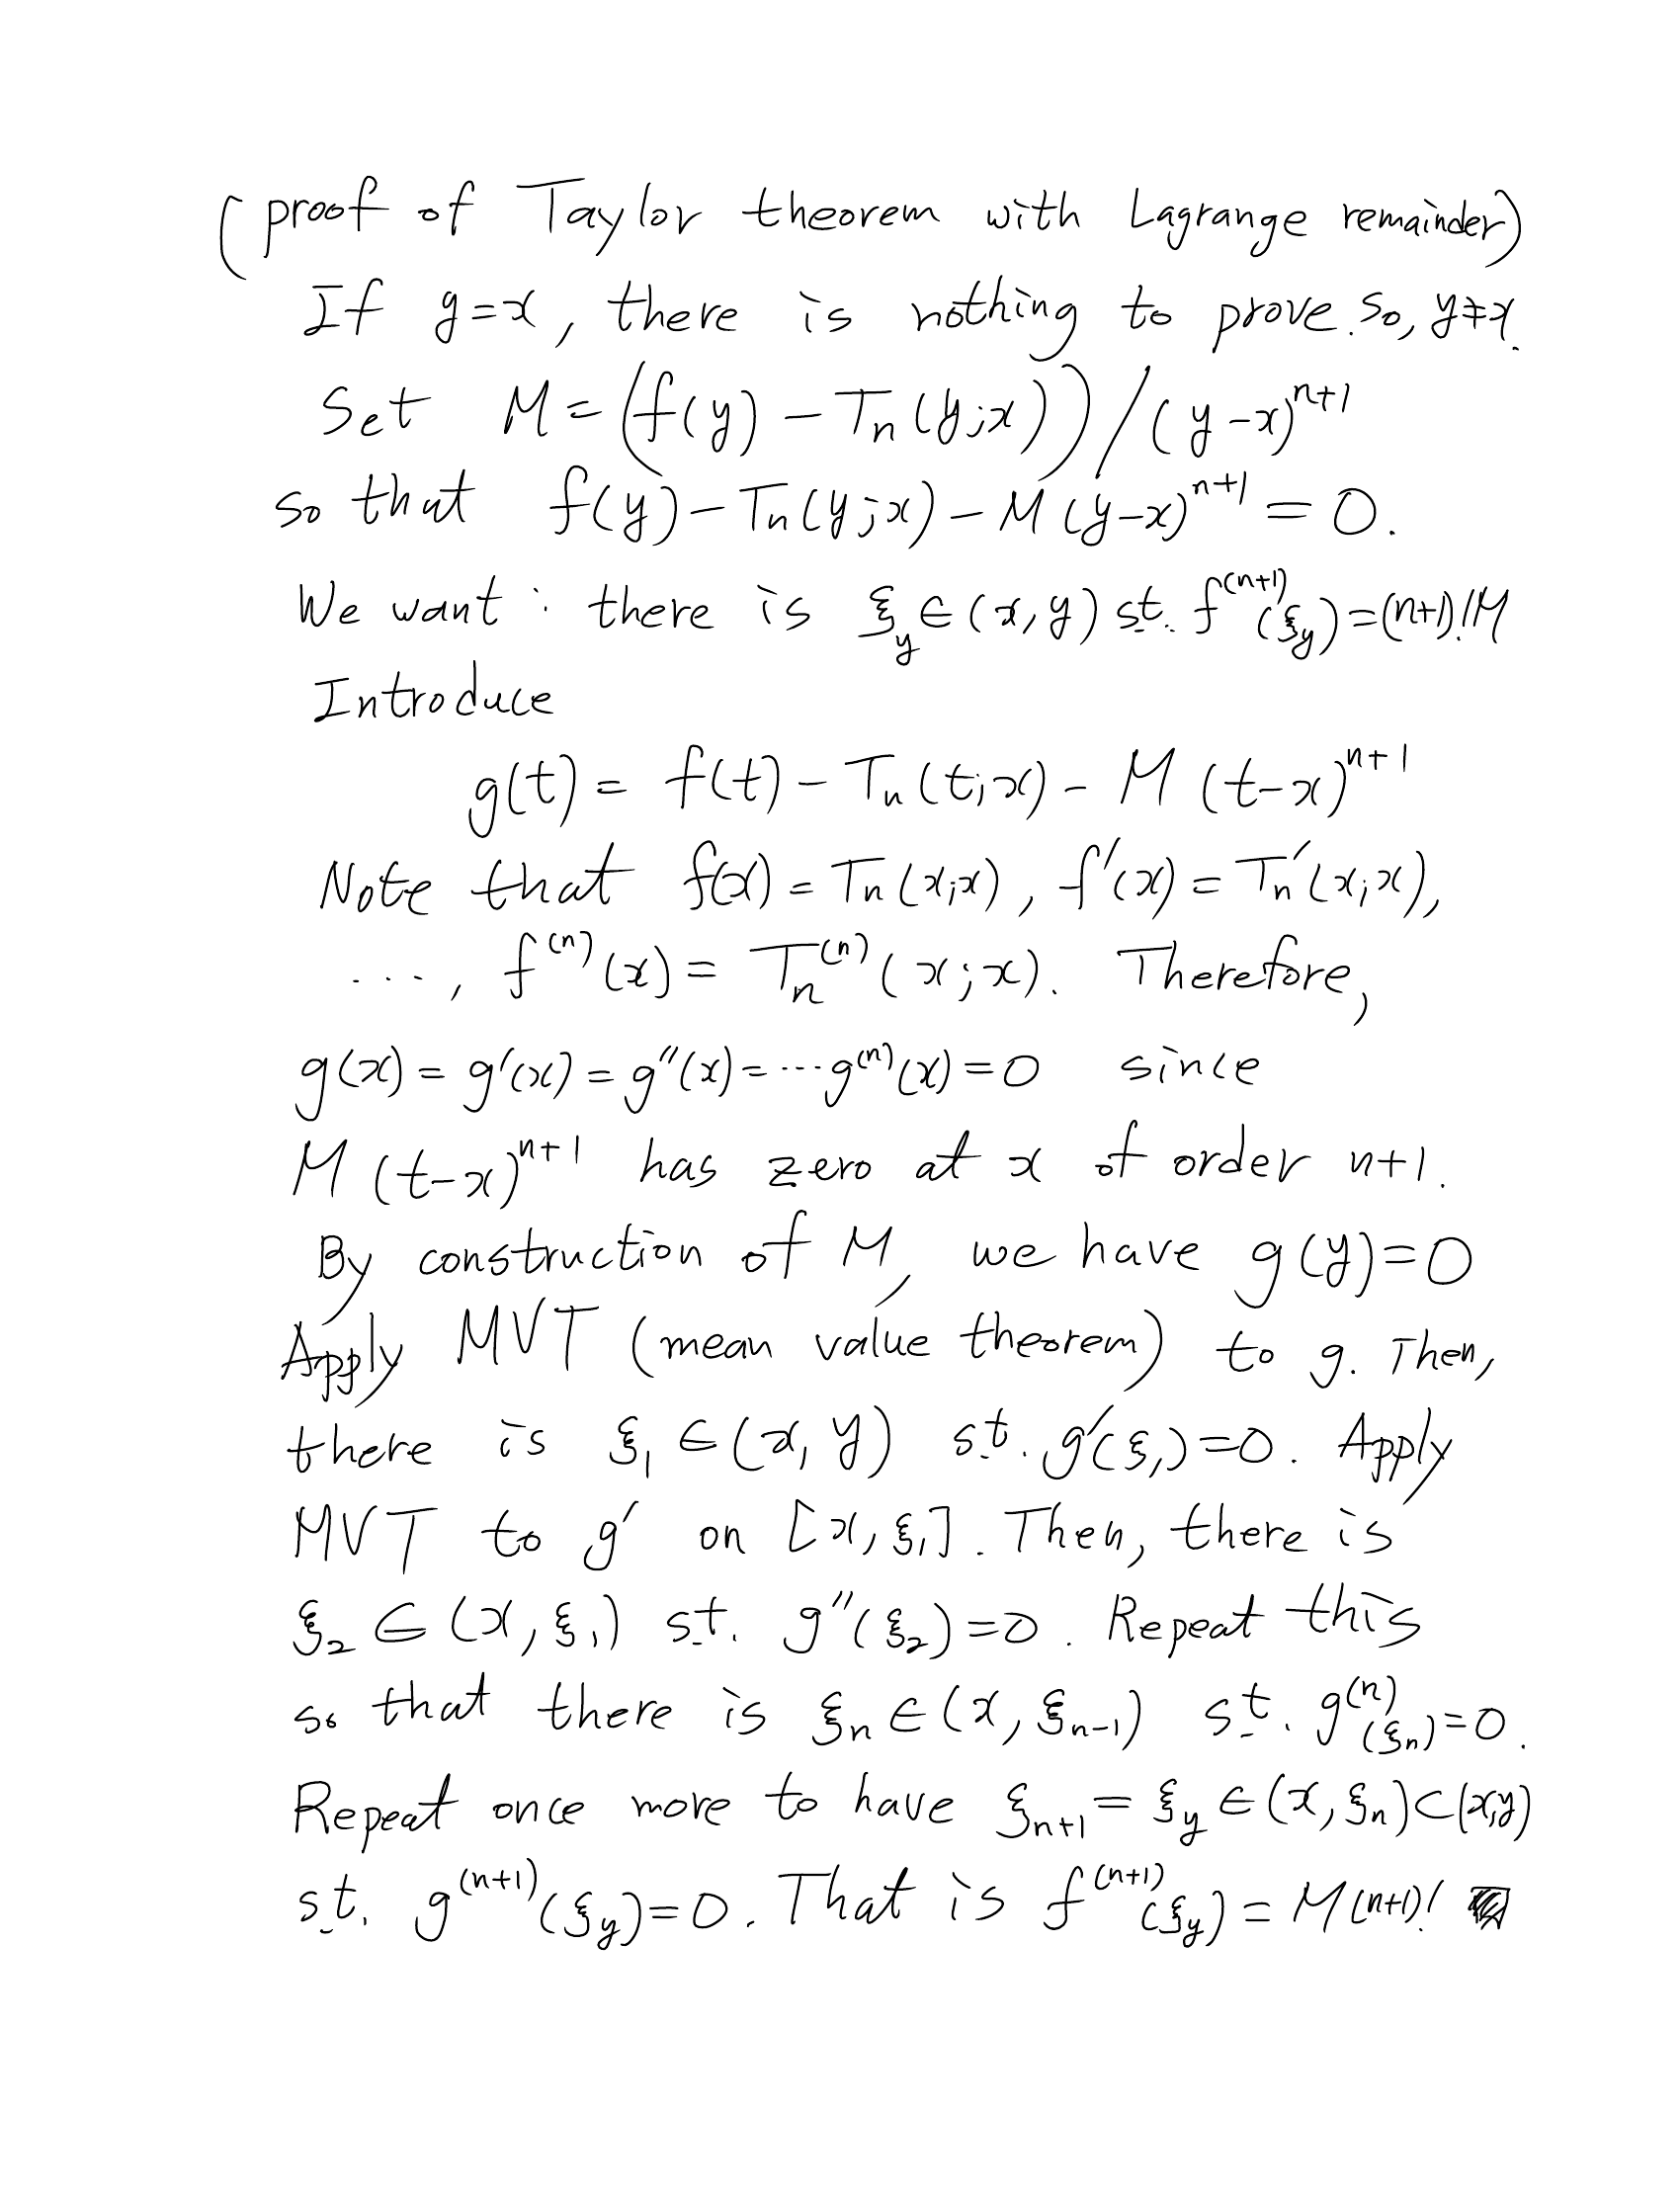 (proof of Taylor theorem with Lagrange remainder)
If y=x, there is nothing to prove. So, y≠x.
Set M=(f(y)-Tn(y;x))/(y-x)^{n+1}
so that f(y)-Tn(y;x)-M(y-x)^{n+1}=0.
We want: there is ξ_y∈(x,y) s.t. f^{(n+1)}(ξ_y)=(n+1)!M
Introduce
g(t)=f(t)-Tn(t;x)-M(t-x)^{n+1}
Note that f(x)=Tn(x;x), f'(x)=Tn'(x;x),
..., f^{(n)}(x)=Tn^{(n)}(x;x). Therefore,
g(x)=g'(x)=g''(x)=...g^{(n)}(x)=0 since
M(t-x)^{n+1} has zero at x of order n+1.
By construction of M, we have g(y)=0
Apply MVT (mean value theorem) to g. Then,
there is ξ_1∈(x,y) s.t. g'(ξ_1)=0. Apply
MVT to g' on [x,ξ_1]. Then, there is
ξ_2∈(x,ξ_1) s.t. g''(ξ_2)=0. Repeat this
so that there is ξ_n∈(x,ξ_{n-1}) s.t. g^{(n)}(ξ_n)=0.
Repeat once more to have ξ_{n+1}=ξ_y∈(x,ξ_n)⊂(x,y)
s.t. g^{(n+1)}(ξ_y)=0. That is f^{(n+1)}(ξ_y)=M(n+1)!